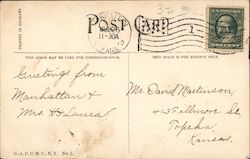 POST CARD
PRINTED IN GERMANY
11-30A
KANS.
THIS SPACE MAY BE USED FOR CORRESPONDENCE.
THIS SPACE IS FOR ADDRESS ONLY.
Greetings from
Manhattan &
Mrs. H + Laura
Mr. David Martinson
413 Fillmore St.
Topeka
Kansas.